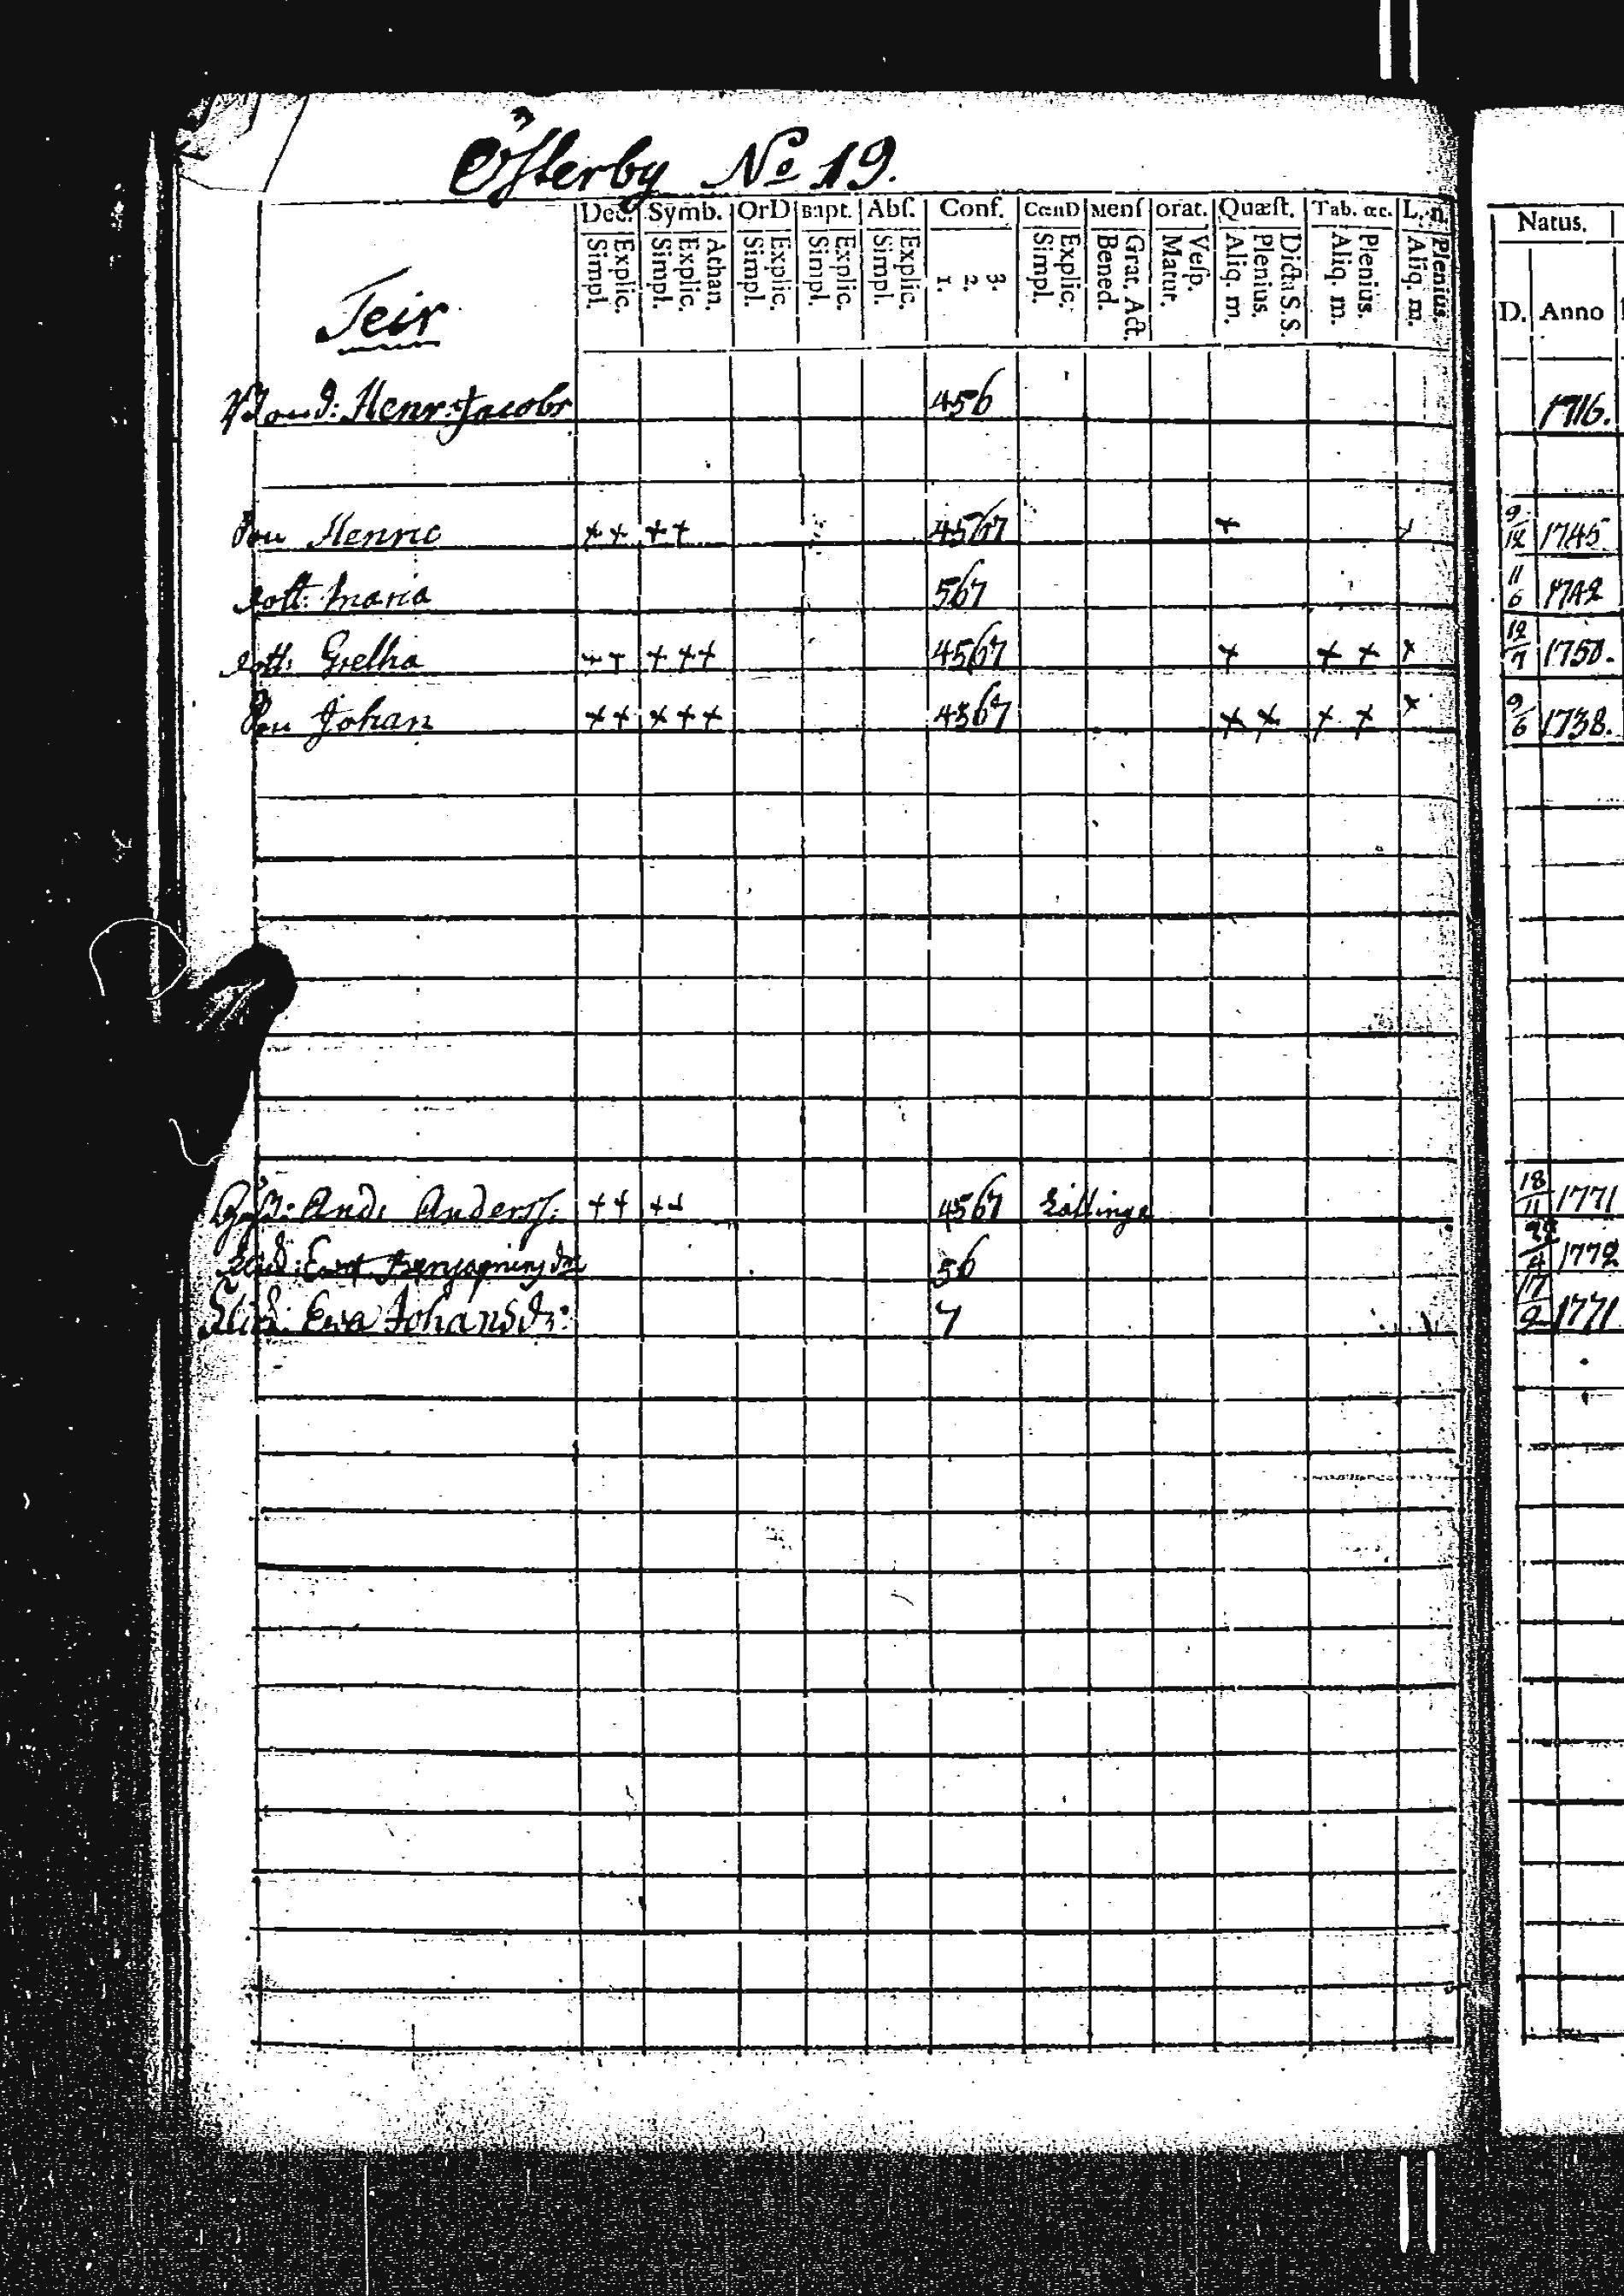 Österby No 19.
Dec. Symb. OrD Bapt. Abſ. Conf. CœnD Menſ orat. Quæſt. Tab. œc. L. n. Natus.
Explic. Simpl. Athan. Explic. Simpl. Explic. Simpl. Explic. Simpl. Explic. Simpl. 3. 2. 1. Explic. Simpl. Grat. Act. Bened. Veſp. Matut. Dicta S.S. Plenius. Aliq. m. Plenius. Aliq. m. Plenius. Aliq. m. D. Anno
Teir
Henr: Jacobs 456 1716.
Son Henric ++ ++ 4567 + 9/12 1745
dott: Maria 567 11/6 1742
dott: Gretha ++ +++ 4567 + + + + 12/7 1750.
Son Johan ++ +++ 4567 + + + + + 9/6 1738.
And: Anderss: ++ ++ 4567 18/11 1771
56 1772
Ewa Johansdr: 7 17/9 1771